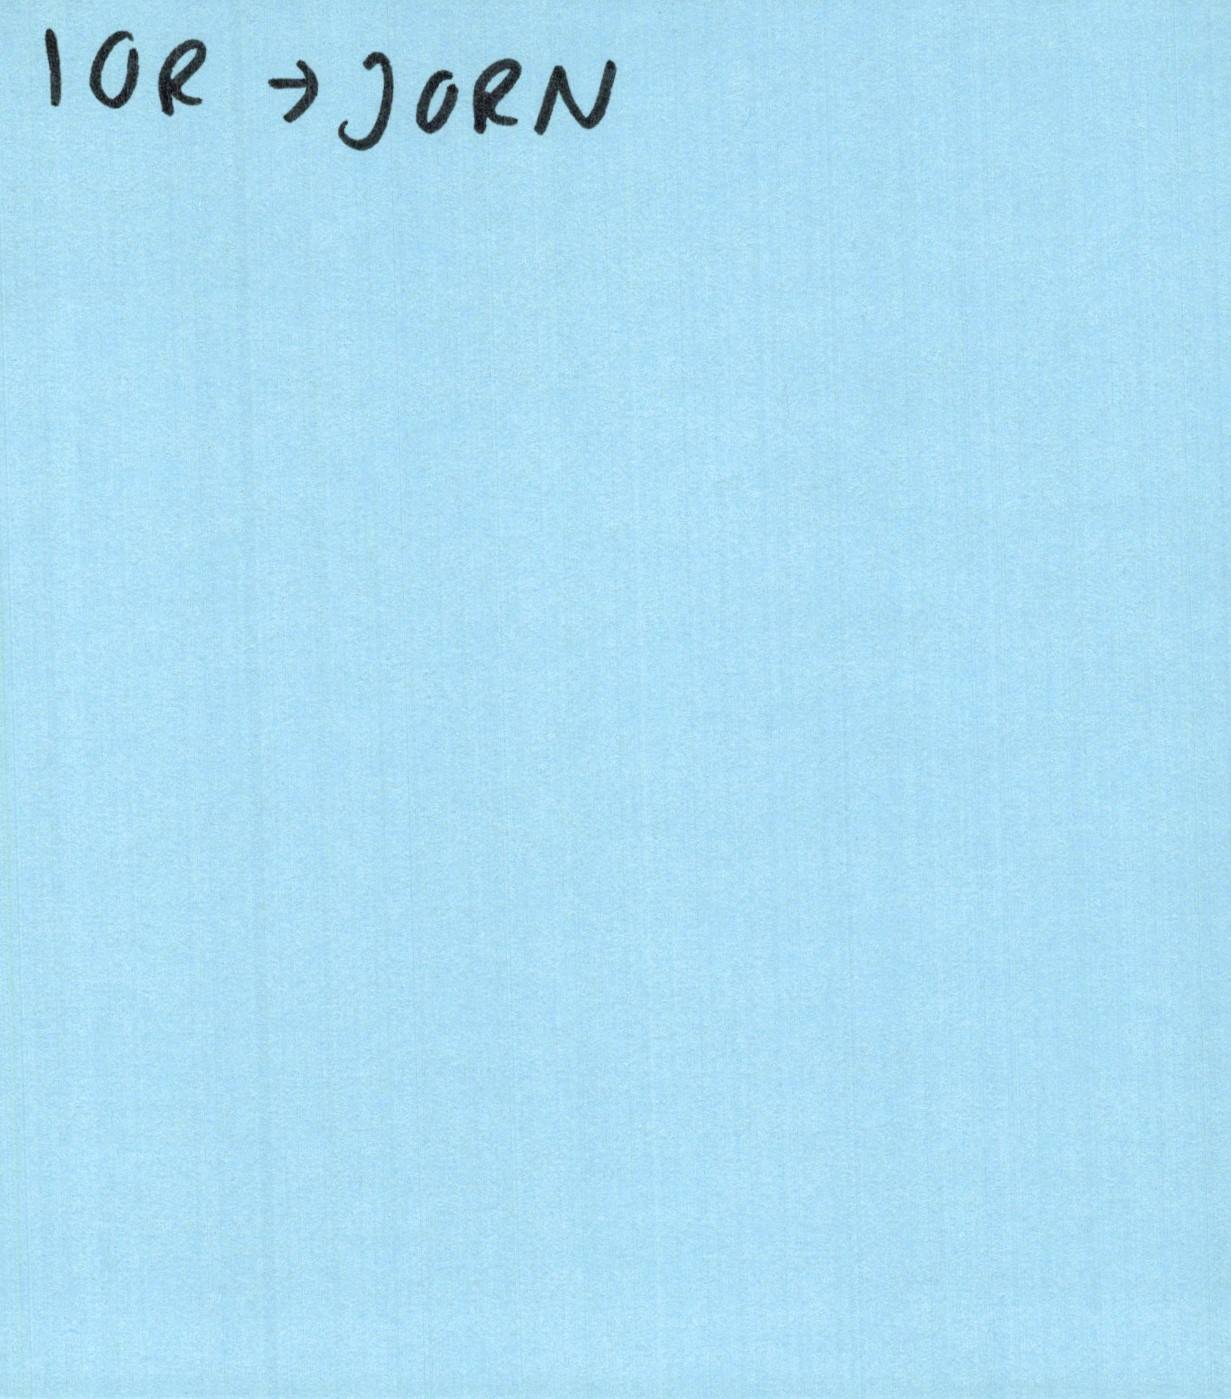 IOR → JORN